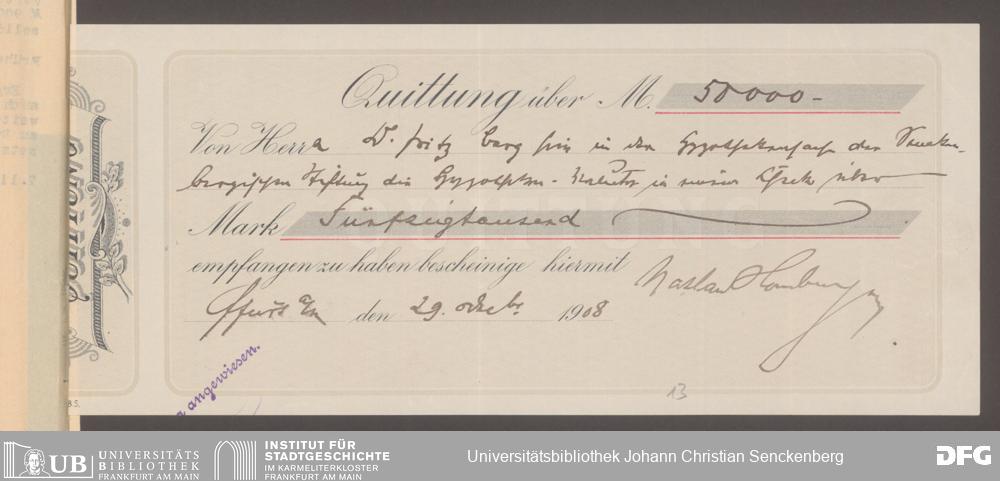 Quittung über M. 50000.-
Von Herrn Dr. Fritz Berg hier in der Hypothekensache der Sencken-
bergischen Stiftung die Hypotheken-Valuta in einem Check über
Mark Fünfzigtausend
empfangen zu haben bescheinige hiermit
Ffurt a/M den 29. 1908
angewiesen.
13
85.
UB
UNIVERSITÄTS
BIBLIOTHEK
FRANKFURT AM MAIN
INSTITUT FÜR
STADTGESCHICHTE
IM KARMELITERKLOSTER
FRANKFURT AM MAIN
Universitätsbibliothek Johann Christian Senckenberg
DFG